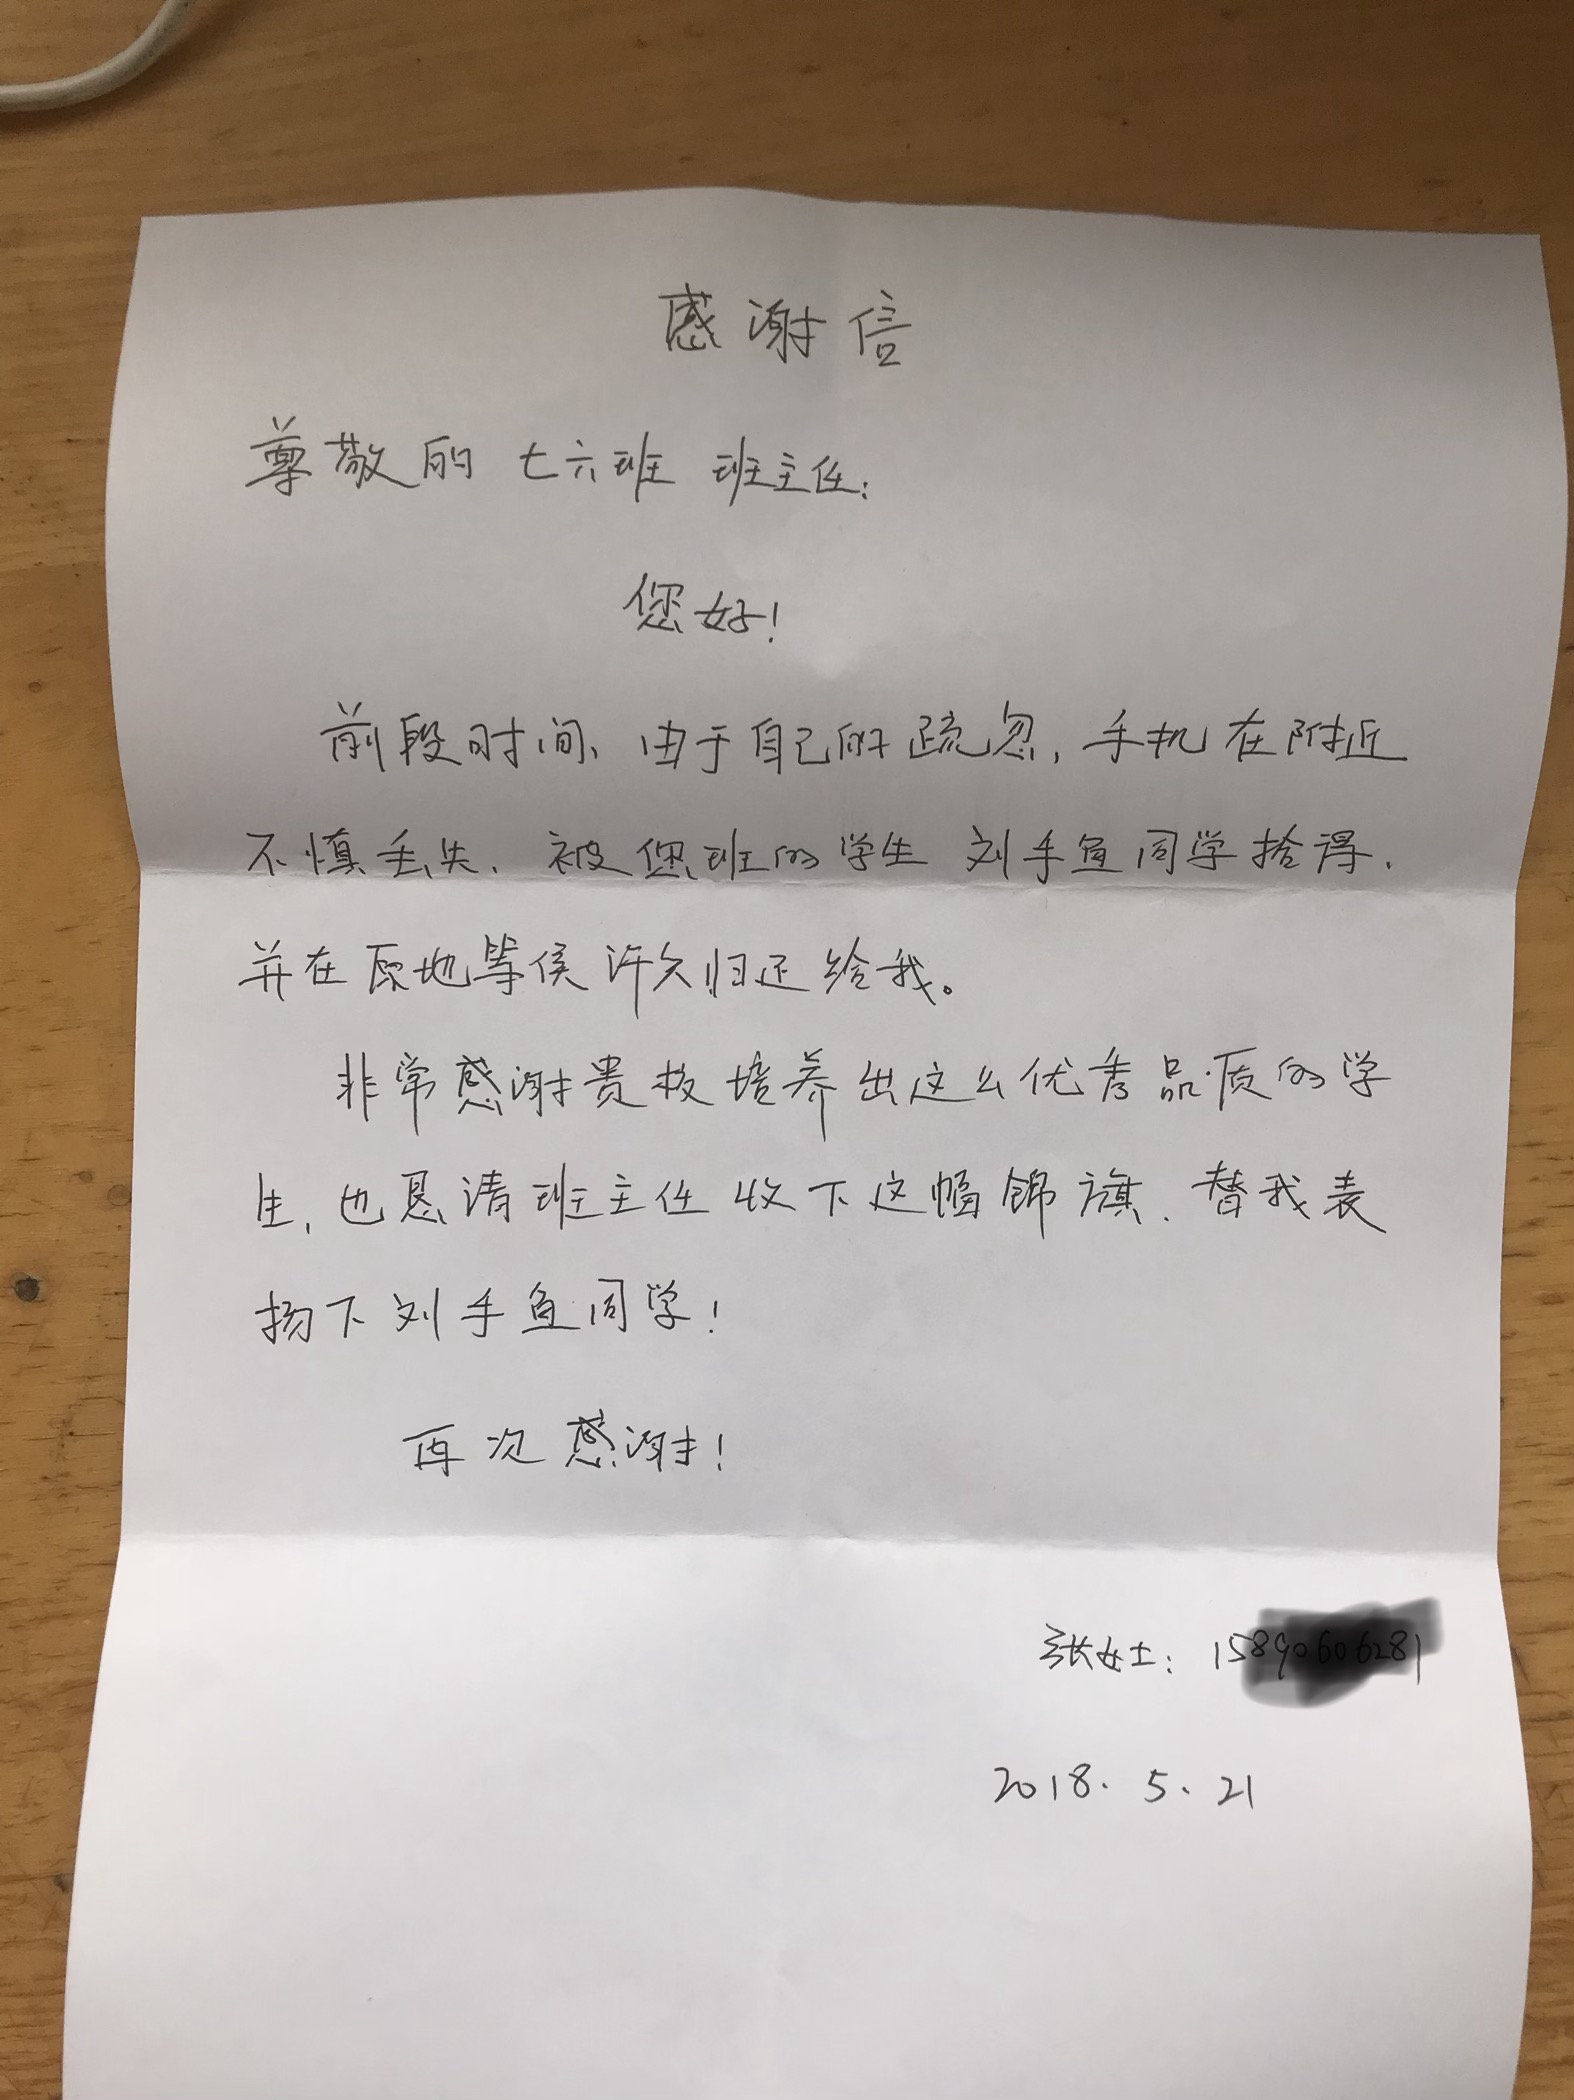 感谢信
尊敬的 七六班 班主任:
您好!
前段时间、由于自己的疏忽,手机在附近
不慎丢失.被您班的学生 刘手鱼同学拾得.
并在原地等侯许久归还给我。
非常感谢贵校培养出这么优秀品质的学
生,也恳请班主任收下这幅锦旗.替我表
扬下刘手鱼同学!
再次感谢!
张女士:
2018.5.21